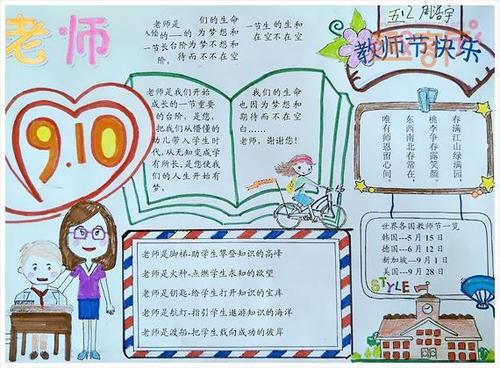 老师
老师是  们的生命  一节生的生和
一节长台阶为梦不想和  在空不在空
阶，  待而不不在空
五、2 周浩宇
教师节快乐
9.10
老师是我们开始
成长的一节重要
的台阶，是您，
把我们从懵懂的
幼儿带入学生时
代，从无知变成学
有所长，是您使我
们的人生开始有
梦，
我们的生命
也因为梦想和
期待而不在空
白……
老师，谢谢您！
春满江山绿满园，
桃李争春露笑颜。
东西南北春常在，
唯有师恩留心间。
世界各国教师节一览
韩国---5月15日
德国---6月12日
新加坡---9月1日
美国---9月28日
STYLE
老师是脚梯-助学生攀登知识的高峰
老师是火种-点燃学生求知的欲望
老师是钥匙-给学生打开知识的宝库
老师是航灯-指引学生遨游知识的海洋
老师是渡船-把学生载向成功的彼岸